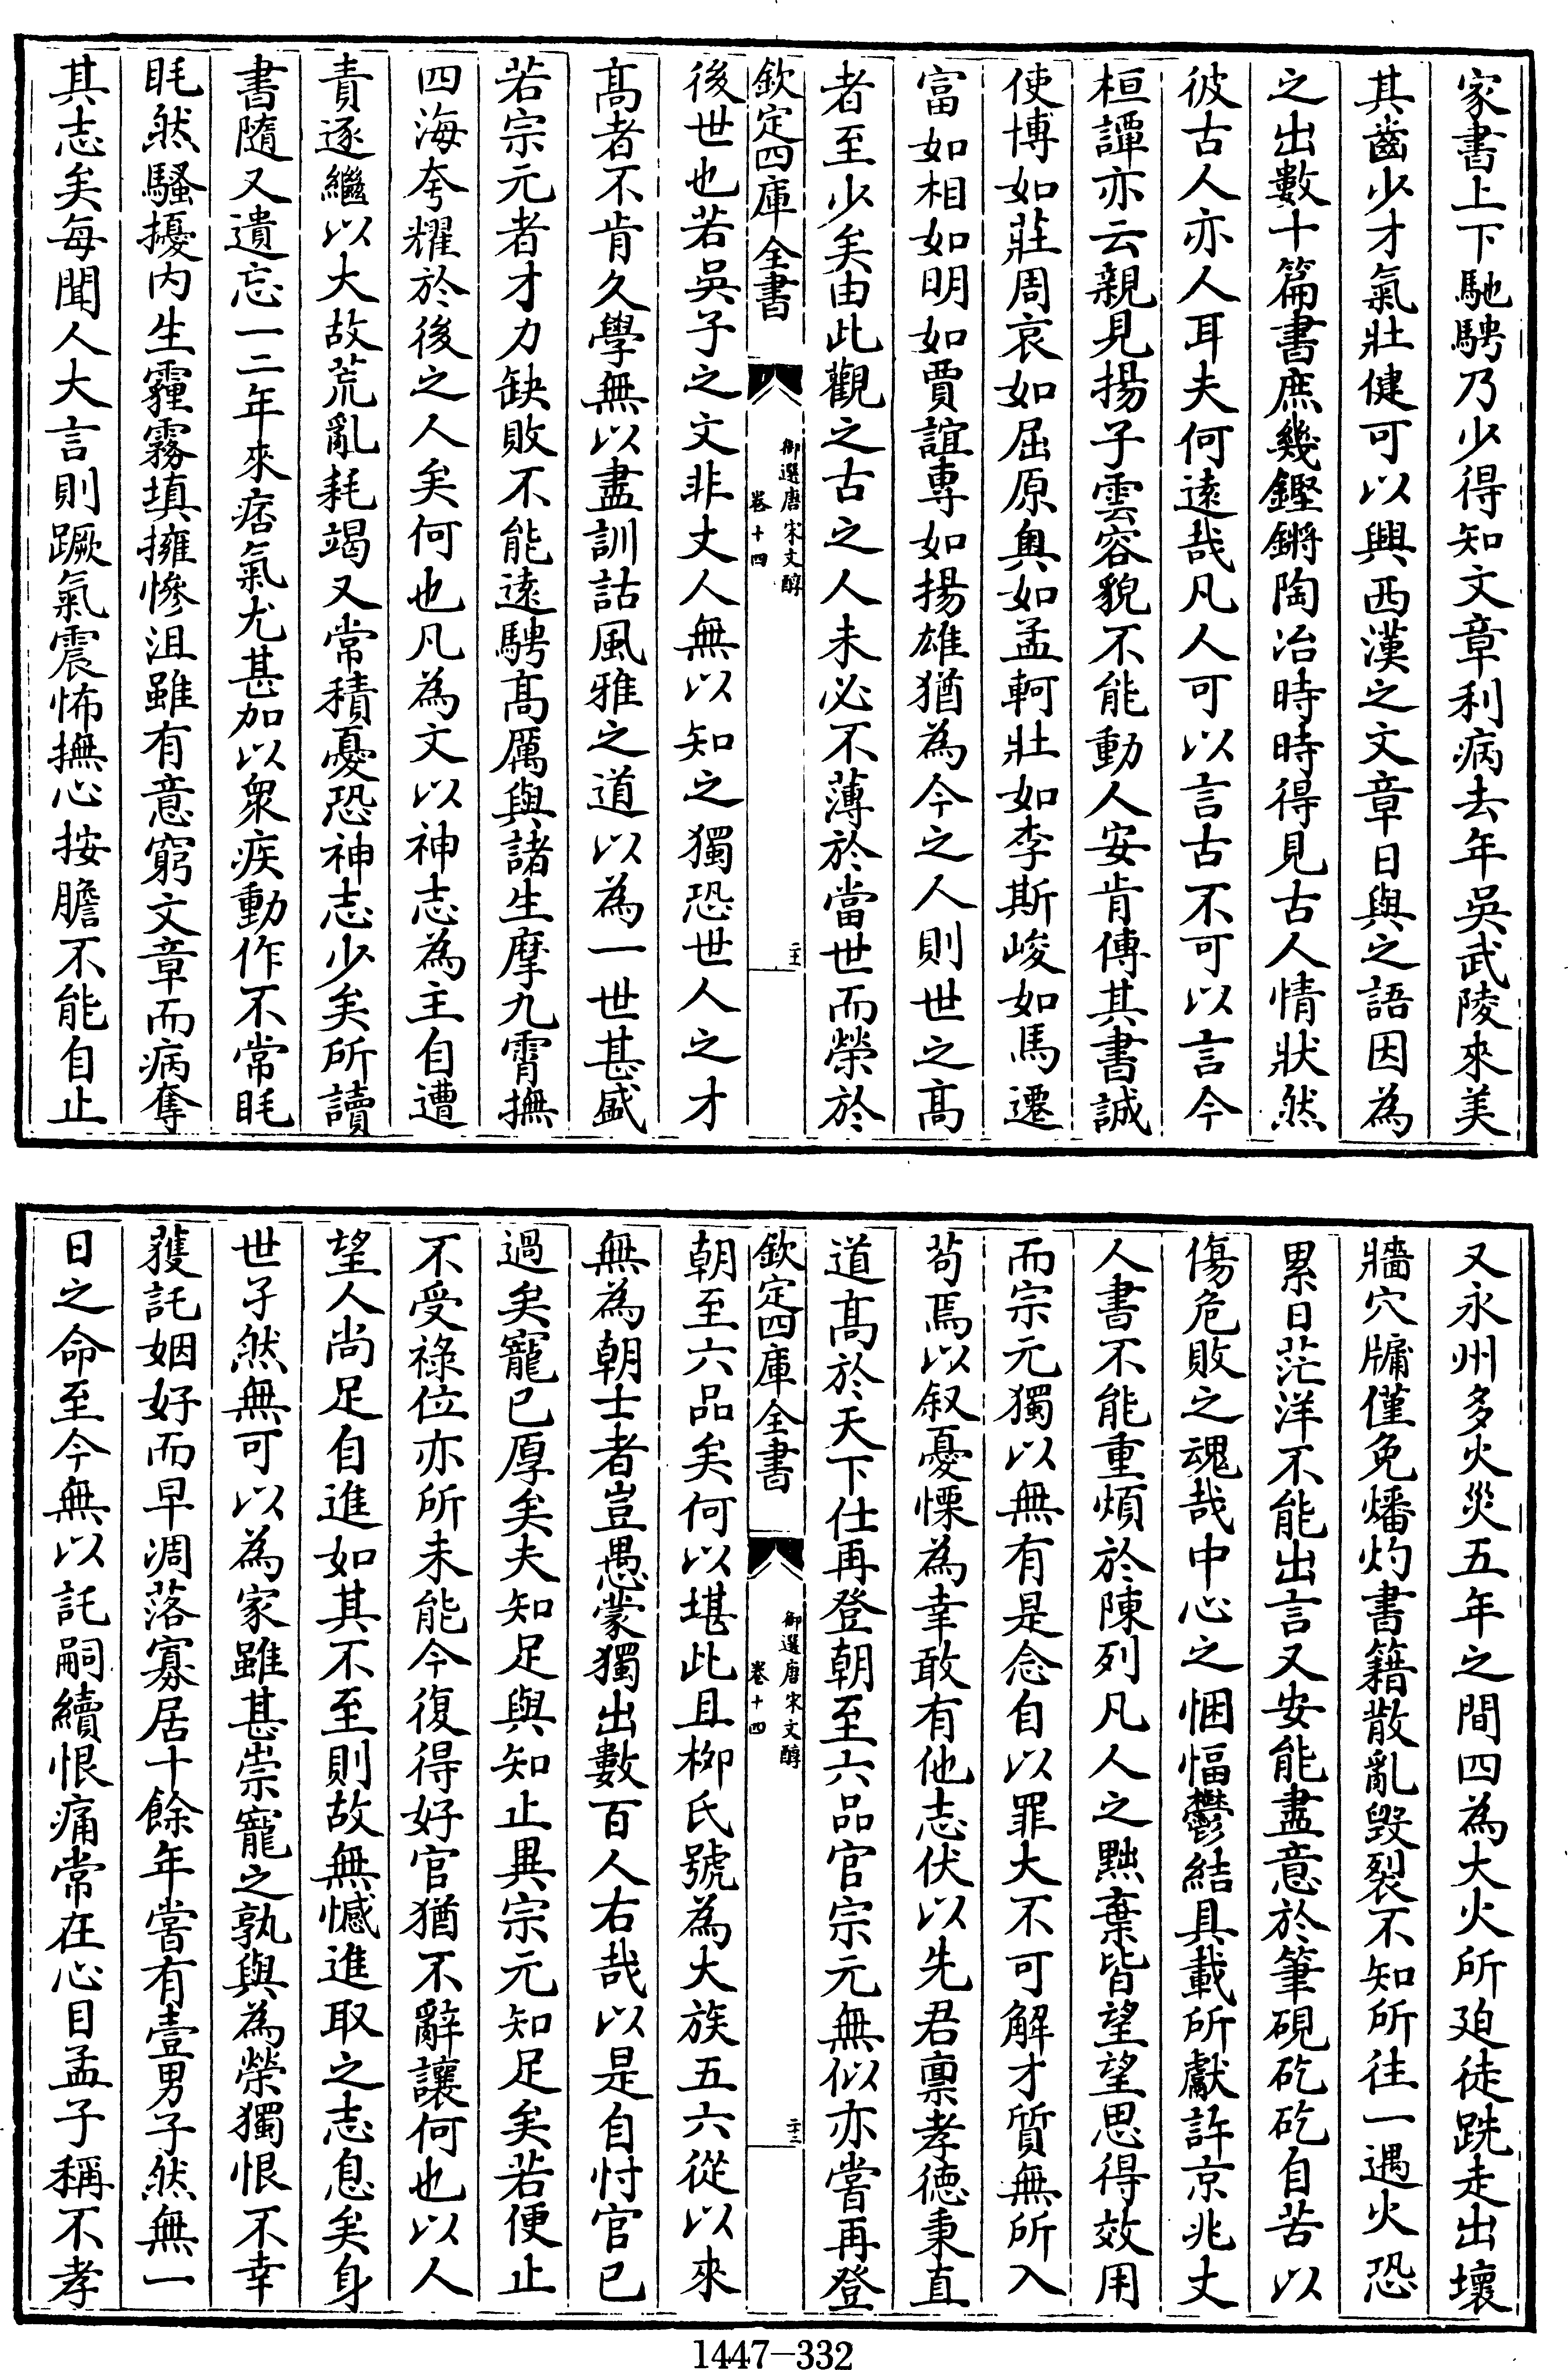 家書上下馳騁乃少得知文章利病去年吳武陵來美
其齒少才氣壯健可以興西漢之文章日與之語因為
之出數十篇書庶幾鏗鏘陶冶時時得見古人情狀然
彼古人亦人耳夫何遠哉凡人可以言古不可以言今
桓譚亦云親見揚子雲容貌不能動人安肯傳其書誠
使博如莊周哀如屈原奧如孟軻壯如李斯峻如馬遷
富如相如明如賈誼專如揚雄猶為今之人則世之高
者至少矣由此觀之古之人未必不薄於當世而榮於
欽定四庫全書
御選唐宋文醇
卷十四
二十一
後世也若吳子之文非丈人無以知之獨恐世人之才
高者不肯久學無以盡訓詁風雅之道以為一世甚盛
若宗元者才力缺敗不能遠騁高厲與諸生摩九霄撫
四海夸耀於後之人矣何也凡為文以神志為主自遭
責逐繼以大故荒亂耗竭又常積憂恐神志少矣所讀
書隨又遺忘一二年來痞氣尤甚加以衆疾動作不常眊
眊然騷擾内生霾霧填擁慘沮雖有意窮文章而病奪
其志矣每聞人大言則蹶氣震怖撫心按膽不能自止
又永州多火災五年之間四為大火所廹徒跣走出壞
牆穴牖僅免燔灼書籍散亂毁裂不知所往一遇火恐
累日茫洋不能出言又安能盡意於筆硯矻矻自苦以
傷危敗之魂哉中心之悃愊鬱結具載所獻許京兆丈
人書不能重煩於陳列凡人之黜棄皆望望思得效用
而宗元獨以無有是念自以罪大不可解才質無所入
苟焉以叙憂慄為幸敢有他志伏以先君稟孝德秉直
道高於天下仕再登朝至六品官宗元無似亦嘗再登
欽定四庫全書
御選唐宋文醇
卷十四
二十二
朝至六品矣何以堪此且柳氏號為大族五六從以來
無為朝士者豈愚蒙獨出數百人右哉以是自忖官已
過矣寵已厚矣夫知足與知止異宗元知足矣若便止
不受祿位亦所未能今復得好官猶不辭讓何也以人
望人尚足自進如其不至則故無憾進取之志息矣身
世孑然無可以為家雖甚崇寵之孰與為榮獨恨不幸
獲託姻好而早凋落寡居十餘年嘗有壹男子然無一
日之命至今無以託嗣續恨痛常在心目孟子稱不孝
1447-332